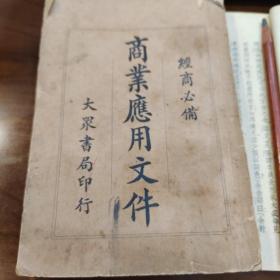 經商必備
商業應用文件
大眾書局印行